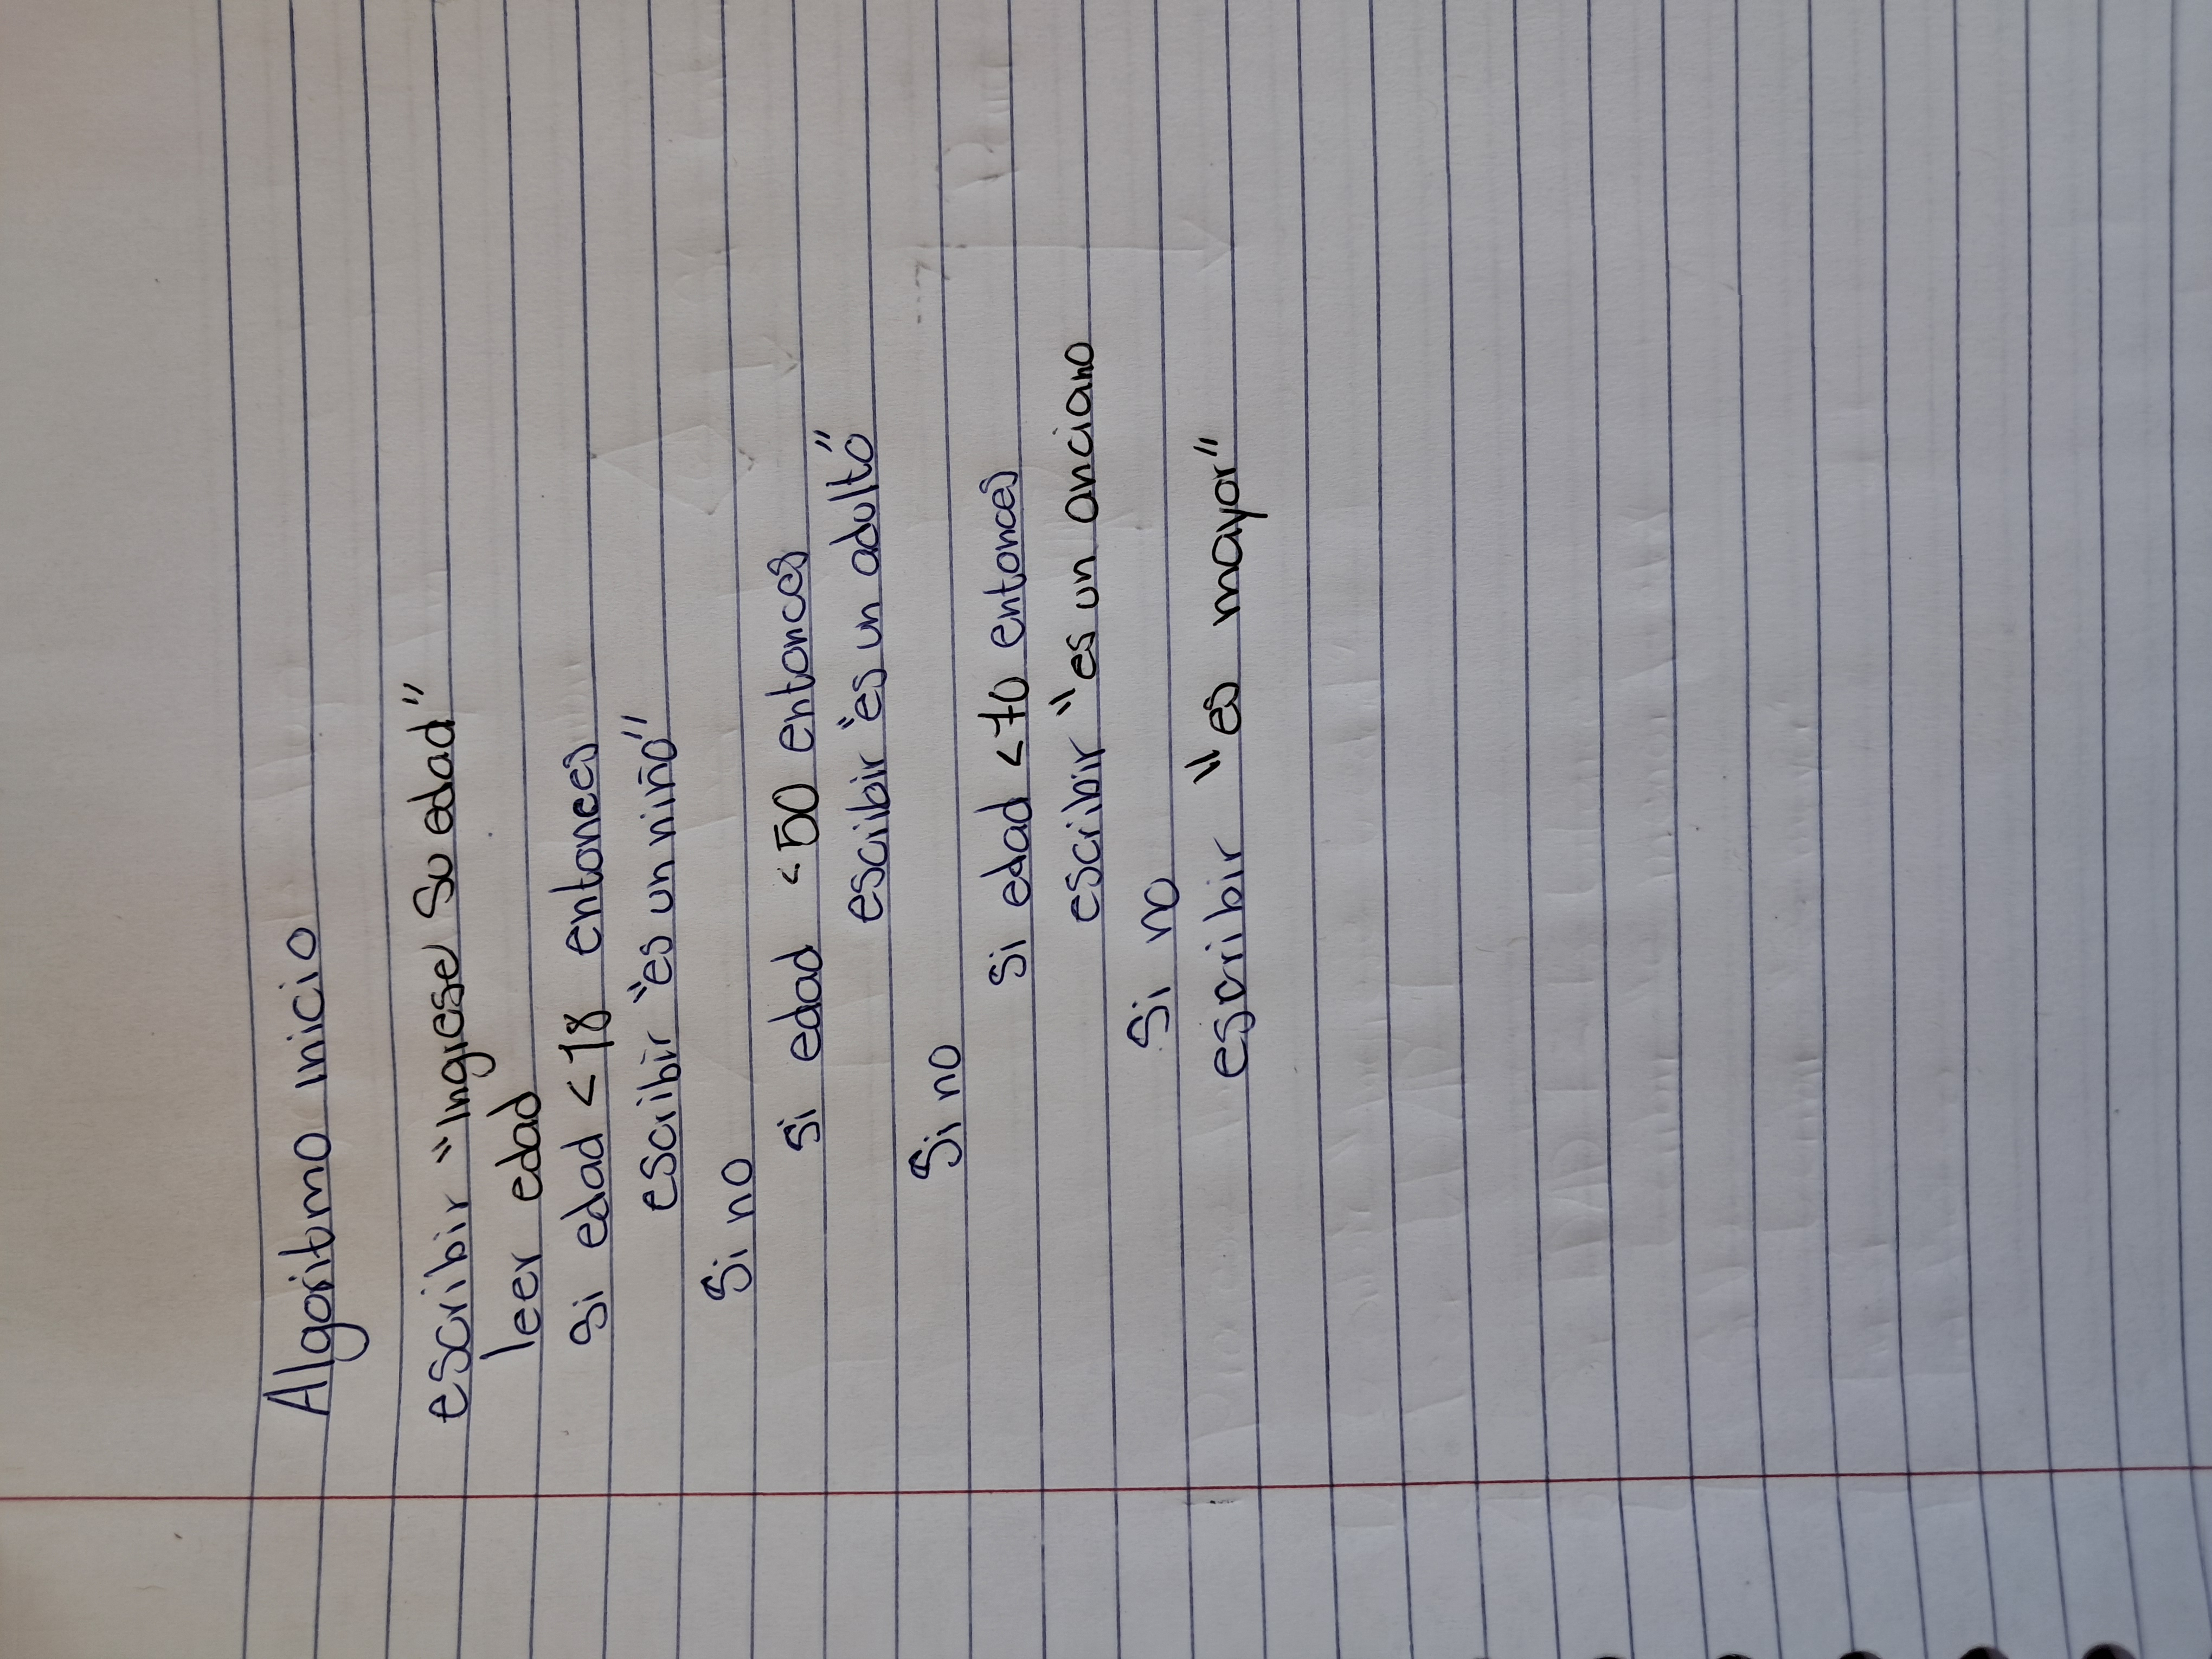 Algoritmo inicio
escribir "Ingrese su edad"
leer edad
Si edad < 18 entonces
escribir "es un niño"
Si no
Si edad < 50 entonces
escribir "es un adulto"
Si no
Si edad < 70 entonces
escribir "es un anciano
Si no
escribir "es mayor"